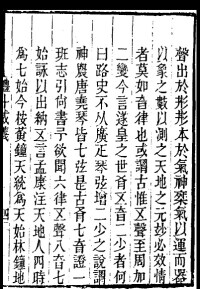 聲出於形形本於氣神乘氣以運而器
以象之數以測之天地之元妙必效情
者莫如音律也或謂古惟五聲至周加
二變今言遂皇之世有五音二少者何
曰路史不从廣疋琴弦增二少之說謂
神農唐堯琴皆七弦是古有七音證一
班志引尚書予欲聞六律五聲八音七
始詠以出納五言孟康注天地人四時
為七始今按黃鐘天統為天始林鐘地
四